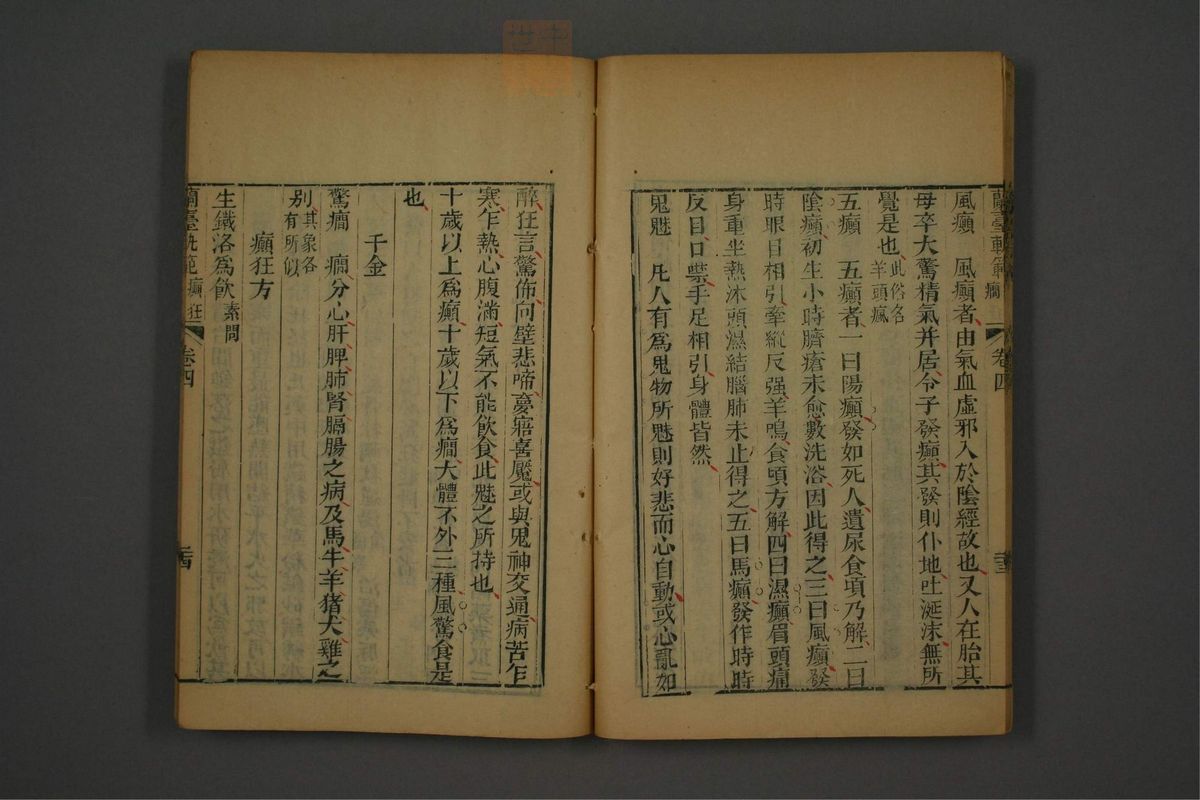 蘭臺軌範 癲 卷四
風癲 風癲者由氣血虛邪入於陰經故也又人在胎其
母卒大驚精氣并居令子發癲其發則仆地吐涎沫無所
覺是也此俗名羊頭瘋
五癲 五癲者一曰陽癲發如死人遺尿食頃乃解二曰
陰癲初生小時臍瘡未愈數洗浴因此得之三曰風癲發
時眼目相引牽縱反强羊鳴食頃方解四曰濕癲眉頭痛
身重坐熱沐頭濕結腦肺未止得之五曰馬癲發作時時
反目口噤手足相引身體皆然
鬼魅 凡人有爲鬼物所魅則好悲而心自動或心亂如
醉狂言驚怖向壁悲啼夢寤喜魘或與鬼神交通病苦乍
寒乍熱心腹滿短氣不能飲食此魅之所持也
十歲以上爲癲十歲以下爲癇大體不外三種風驚食是
也
千金
驚癇 癇分心肝脾肺腎膈腸之病及馬牛羊猪犬雞之
别其象各有所似
癲狂方
生鐵洛爲飲素問
蘭臺軌範 癲狂 卷四